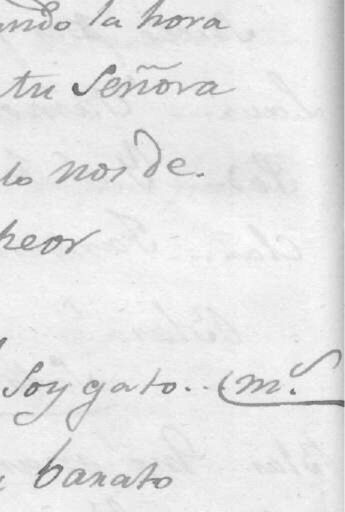 ando la hora
tu Señora
lo nos de.
peor
soy gato..
barato